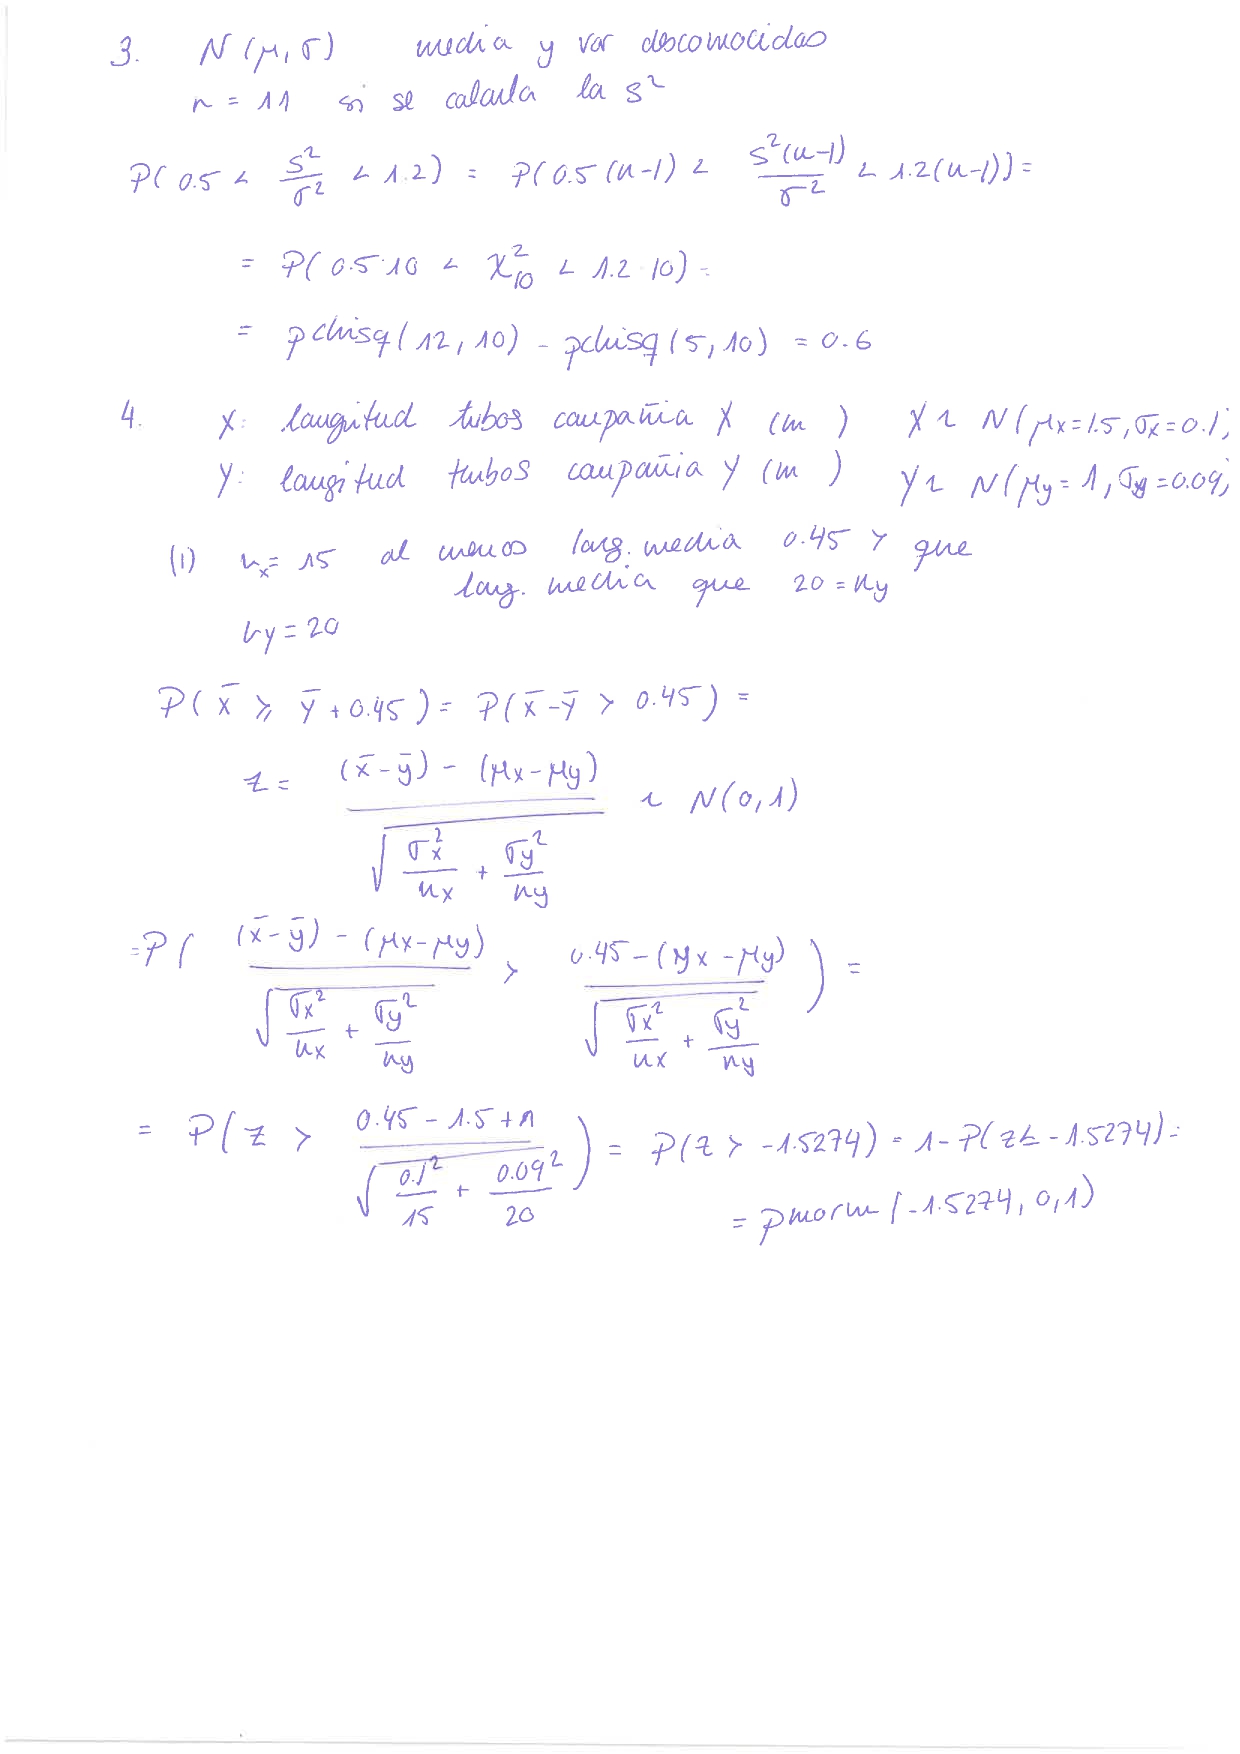 3. N(μ, σ) media y var desconocidas
n = 11 si se calcula la s²
P(0.5 < s²/σ² < 1.2) = P(0.5(n-1) < s²(n-1)/σ² < 1.2(n-1)) =
= P(0.5·10 < χ²₁₀ < 1.2·10) =
= pchisq(12, 10) - pchisq(5, 10) = 0.6
4. X: longitud tubos compañia X (m) X ~ N(μx=1.5, σx=0.1)
Y: longitud tubos compañia Y (m) Y ~ N(μy=1, σy=0.09)
(1) nx = 15 al menos long. media 0.45 > que
long. media que 20 = ny
ny = 20
P(x̄ ⩾ ȳ + 0.45) = P(x̄-ȳ > 0.45) =
z = ((x̄-ȳ) - (μx-μy)) / √(σx²/nx + σy²/ny) ~ N(0,1)
= P( ((x̄-ȳ) - (μx-μy)) / √(σx²/nx + σy²/ny) > (0.45 - (μx-μy)) / √(σx²/nx + σy²/ny) ) =
= P( z > (0.45 - 1.5 + 1) / √(0.1²/15 + 0.09²/20) ) = P(z > -1.5274) = 1 - P(z ≤ -1.5274) =
= pnorm(-1.5274, 0, 1)